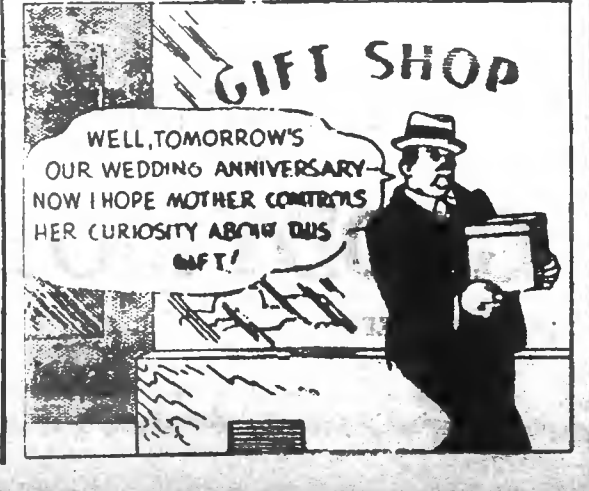 GIFT SHOP
WELL, TOMORROW'S
OUR WEDDING ANNIVERSARY
NOW I HOPE MOTHER CONTROLS
HER CURIOSITY ABOUT THIS
GIFT!